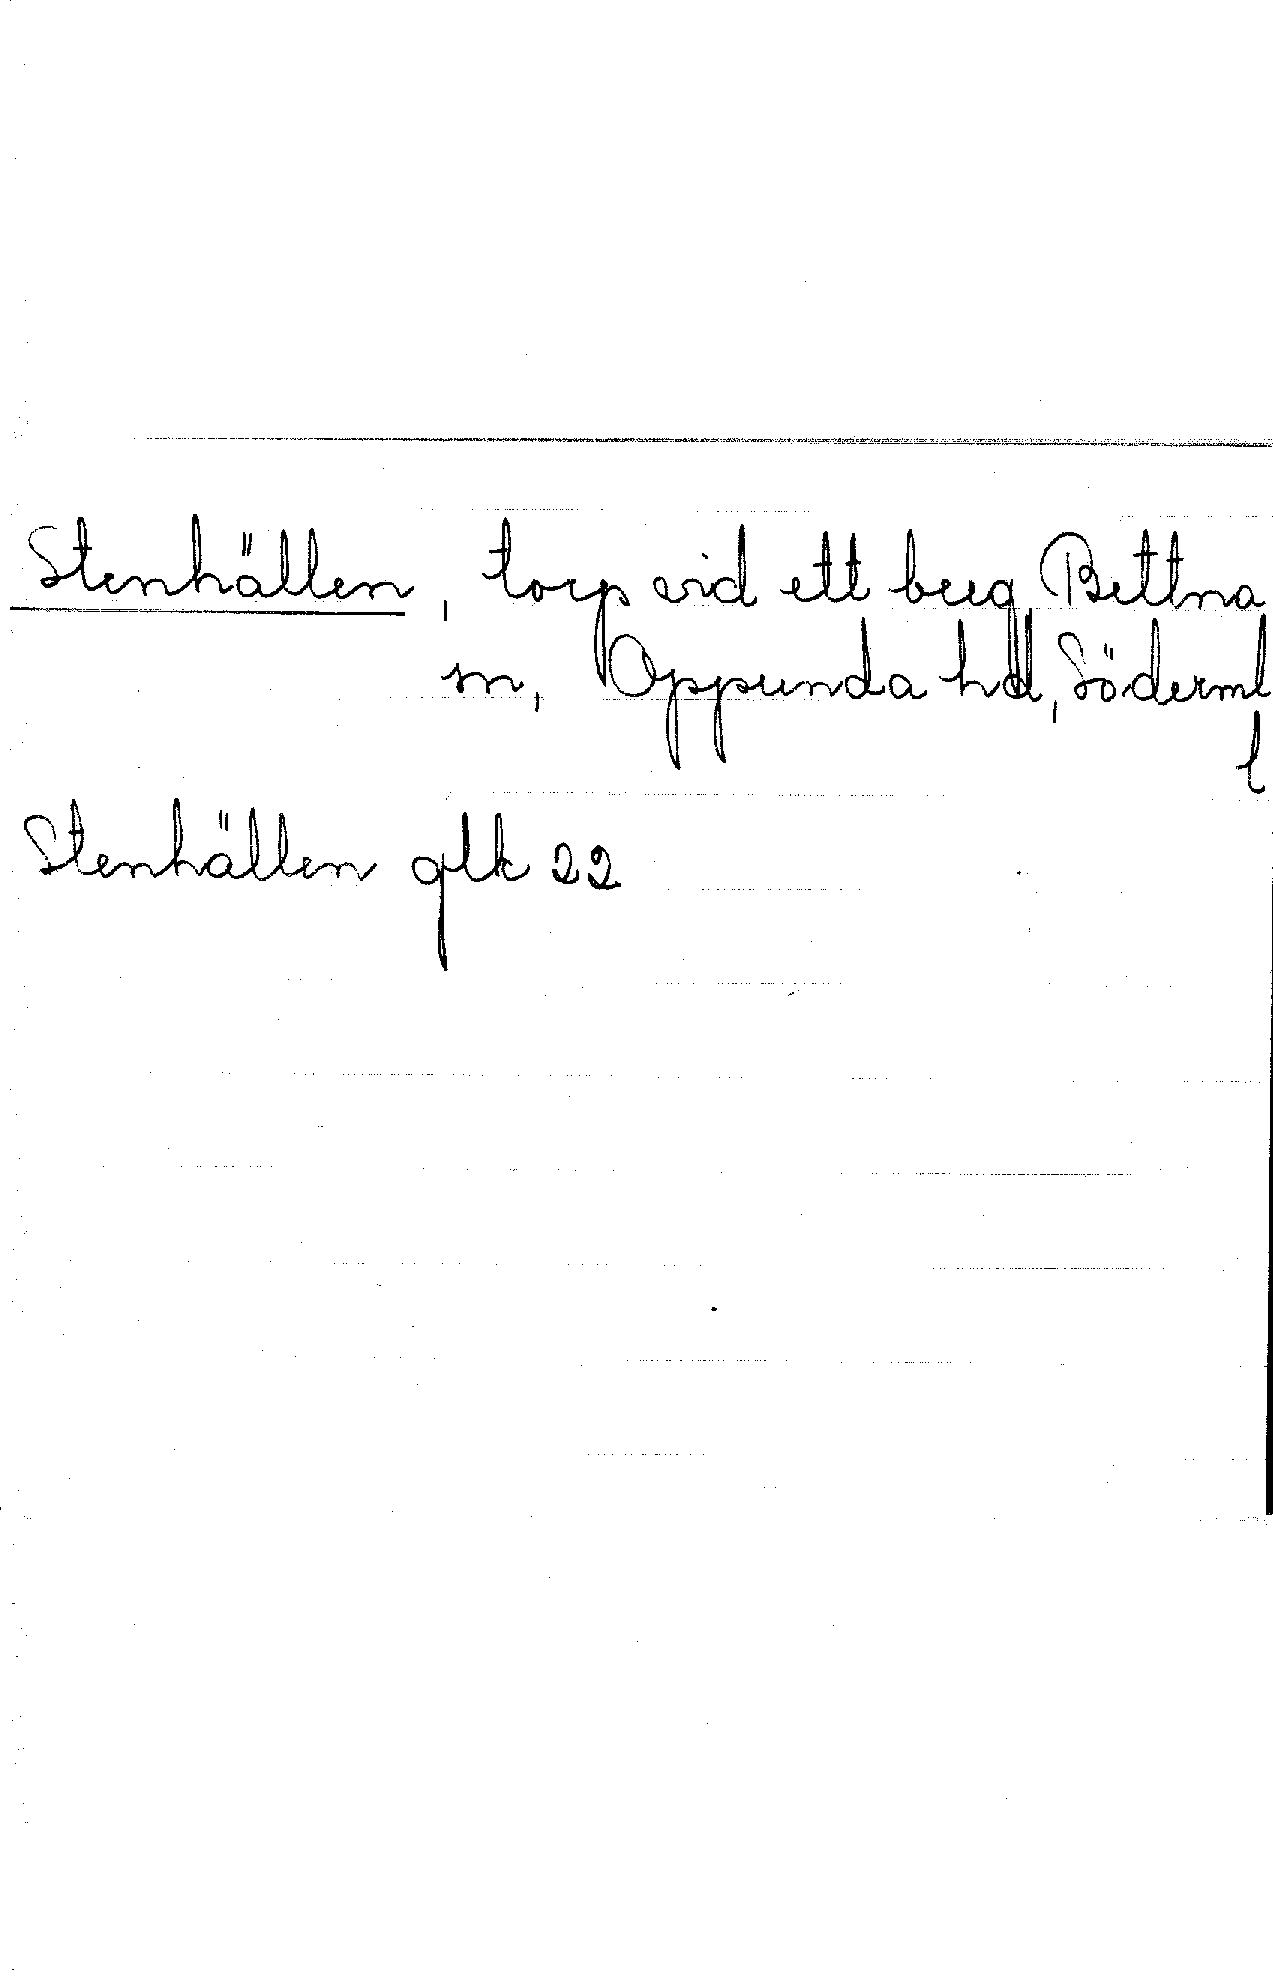 Stenhällen, torp vid ett berg, Bettna
sn, Oppunda hd, Söderml
l
Stenhällen glk 22